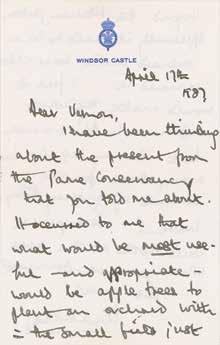 WINDSOR CASTLE
April 17th
1937
Dear Vernon,
I have been thinking
about the present from
the Parne Conservancy
that you told me about.
It occurred to me that
what would be most use-
ful - and appropriate -
would be apple trees to
plant an orchard with
in the small field just